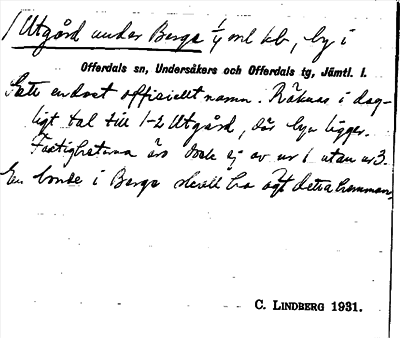 1 Utgård under Berge 1/4 mtl kb, by i
Offerdals sn, Undersåkers och Offerdals tg, Jämtl. l.
Säte endast officiellt namn. Räknas i dag-
ligt tal till 1-2 Utgård, där byn ligger.
Fastigheterna äro dock ej av nr 1 utan nr 3.
En bonde i Berge skall ha ägt detta hemman.
C. LINDBERG 1931.